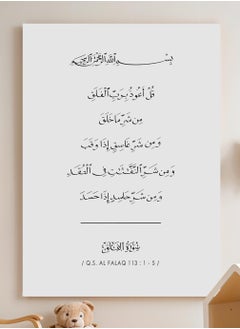 بِسْمِ اللَّهِ الرَّحْمَٰنِ الرَّحِيمِ
قُلْ أَعُوذُ بِرَبِّ الْفَلَقِ
مِن شَرِّ مَا خَلَقَ
وَمِن شَرِّ غَاسِقٍ إِذَا وَقَبَ
وَمِن شَرِّ النَّفَّاثَاتِ فِي الْعُقَدِ
وَمِن شَرِّ حَاسِدٍ إِذَا حَسَدَ
سُورَةُ الْفَلَق
/ Q.S. AL FALAQ 113 : 1 - 5 /